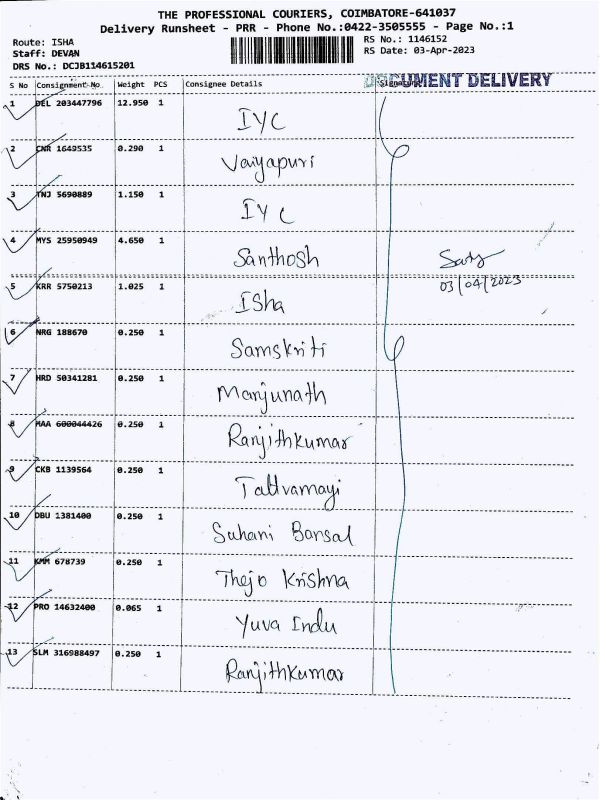 THE PROFESSIONAL COURIERS, COIMBATORE-641037
Delivery Runsheet - PRR - Phone No.:0422-3505555 - Page No.:1
Route: ISHA
Staff: DEVAN
DRS No.: DCJB114615201
RS No.: 1146152
RS Date: 03-Apr-2023
DOCUMENT DELIVERY
S No Consignment No Weight PCS Consignee Details Signature
1 DEL 203447796 12.950 1 IYC
2 CNR 1649535 0.290 1 Vaiyapuri
3 TNJ 5690889 1.150 1 IYC
4 MYS 25950949 4.650 1 Santhosh
03/04/2023
5 KRR 5750213 1.025 1 ISha
6 NRG 188670 0.250 1 Samskriti
7 HRD 50341281 0.250 1 Manjunath
8 MAA 600044426 0.250 1 Ranjithkumar
9 CKB 1139564 0.250 1 Tattvamayi
10 DBU 1381400 0.250 1 Suhani Bansal
11 KMM 678739 0.250 1 Thejo Krishna
12 PRO 14632400 0.065 1 Yuva Indu
13 SLM 316988497 0.250 1 Ranjithkumar